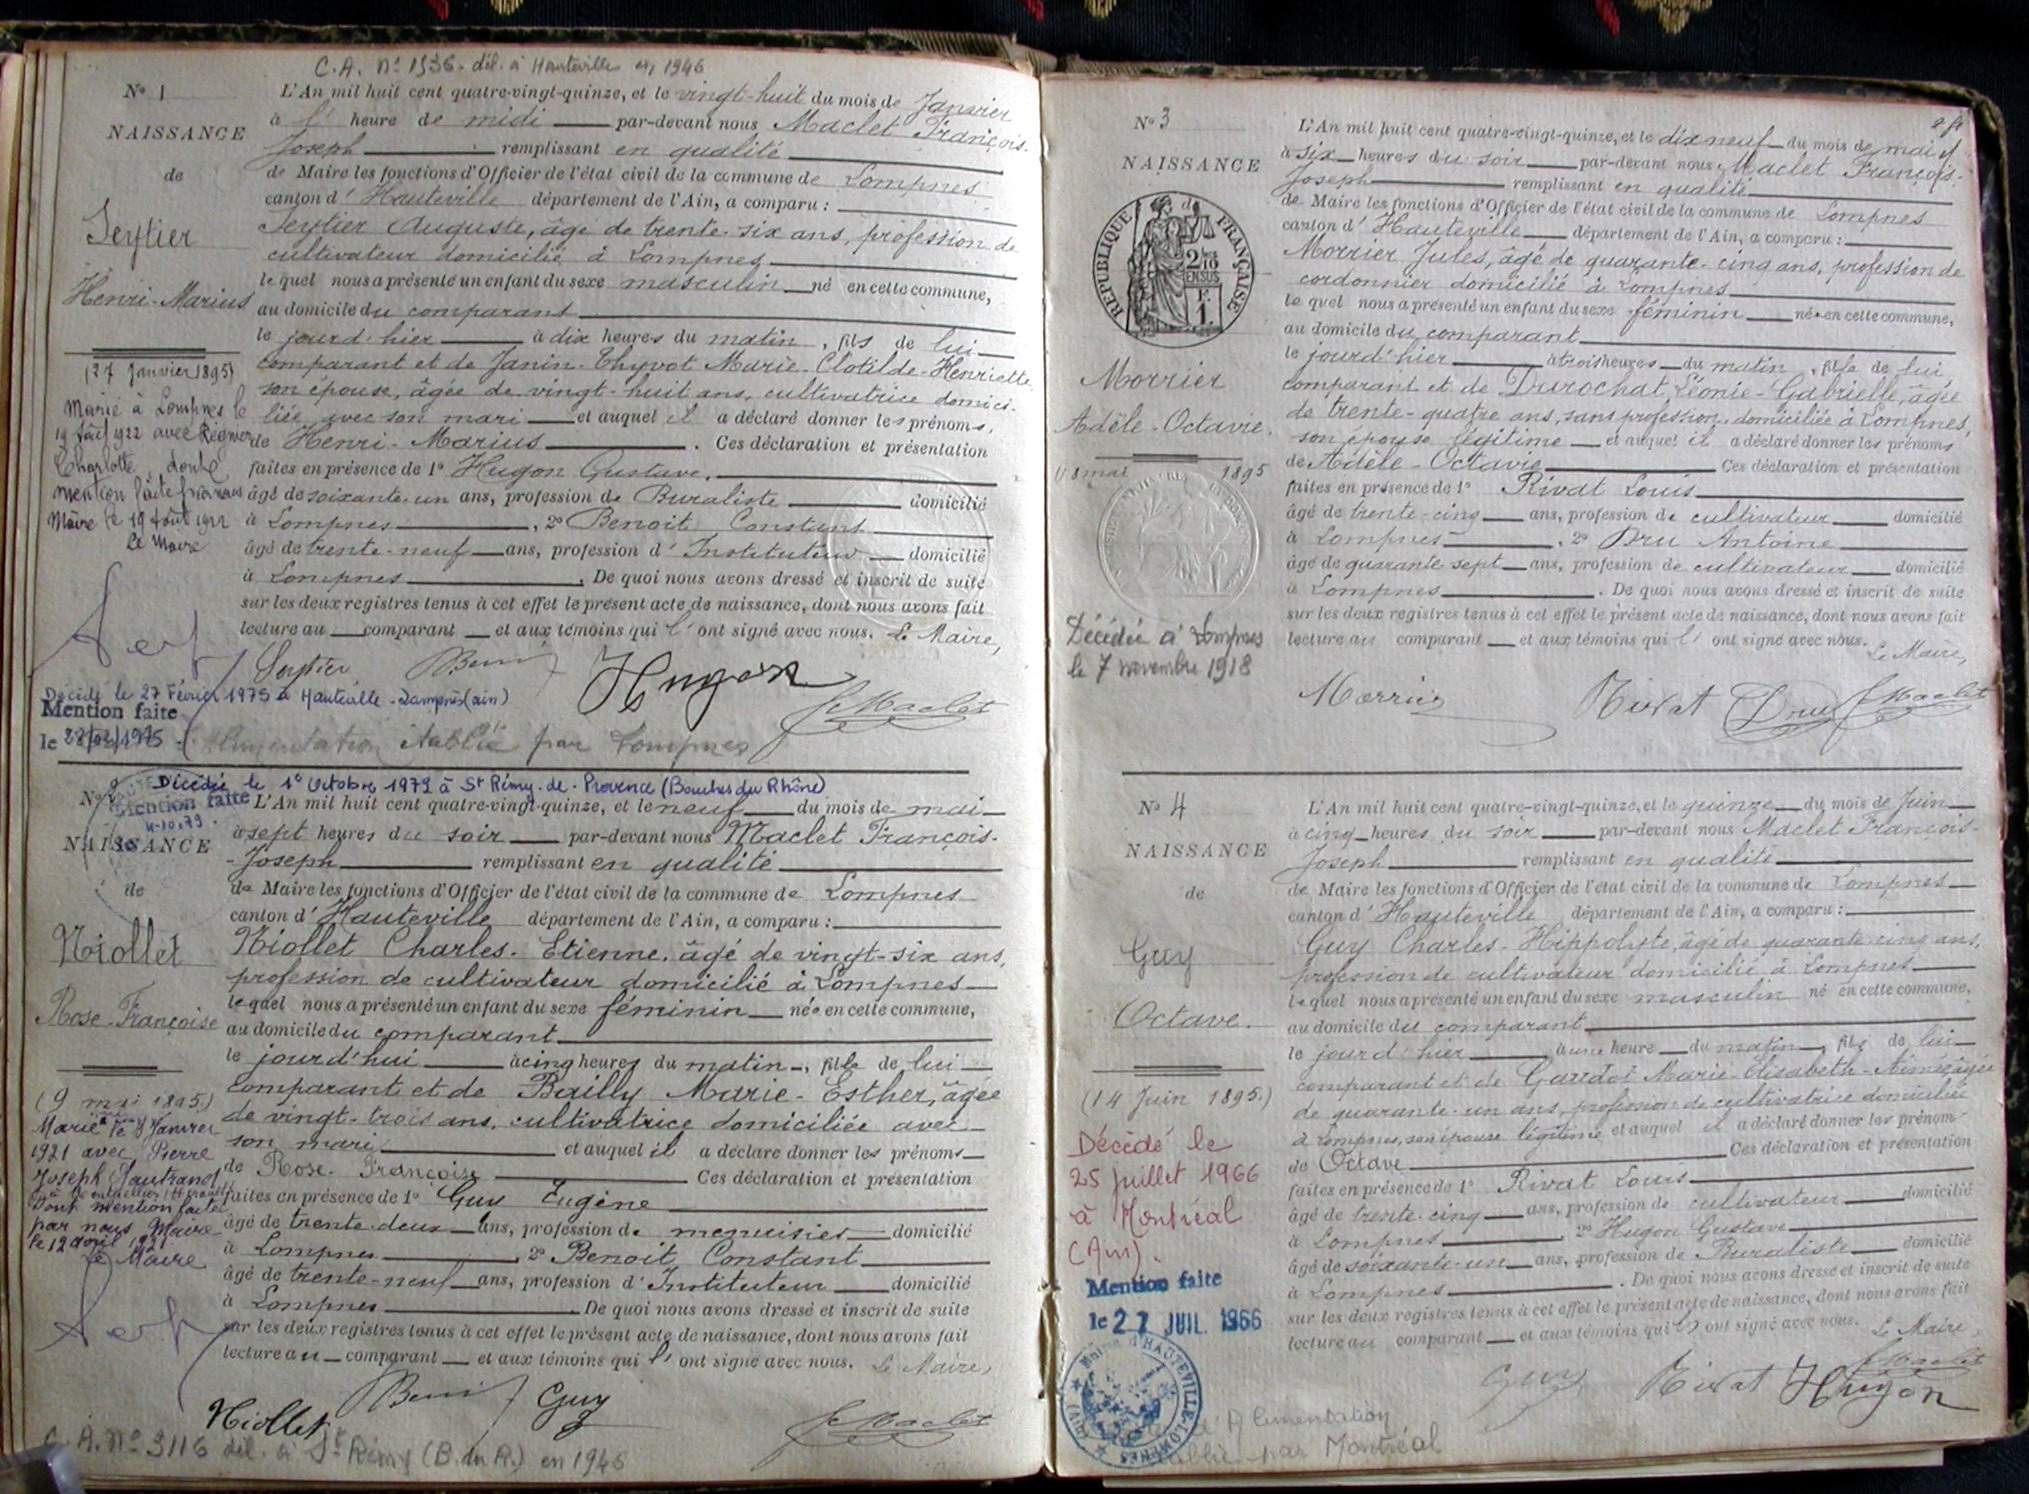 C.A. N° 1536. dél. à Hauteville en 1946
N° 1
NAISSANCE
de
Seytier
Henri-Marius
(27 Janvier 1895)
Marié à Lompnes le
19 août 1922 avec Régnier
Charlotte, dont
mention faite par nous
Maire le 19 Août 1922
Le Maire
L'An mil huit cent quatre-vingt-quinze, et le vingt-huit du mois de Janvier
à l' heure de midi par-devant nous Maclet François-
Joseph remplissant en qualité
de Maire les fonctions d'Officier de l'état civil de la commune de Lompnes
canton d' Hauteville département de l'Ain, a comparu :
Seytier Auguste, âgé de trente-six ans, profession de
cultivateur domicilié à Lompnes
lequel nous a présenté un enfant du sexe masculin né en cette commune,
au domicile du comparant
le jour d'hier à dix heures du matin, fils de lui
comparant et de Janin-Thyvot Marie-Clotilde-Henriette
son épouse, âgée de vingt-huit ans, cultivatrice domici-
liée avec son mari et auquel il a déclaré donner les prénoms,
de Henri-Marius. Ces déclaration et présentation
faites en présence de 1° Hugon Gustave,
âgé de soixante-un ans, profession de Buraliste domicilié
à Lompnes, 2° Benoit Constant
âgé de trente-neuf ans, profession d' Instituteur domicilié
à Lompnes. De quoi nous avons dressé et inscrit de suite
sur les deux registres tenus à cet effet le présent acte de naissance, dont nous avons fait
lecture au comparant et aux témoins qui l' ont signé avec nous. Le Maire,
Seytier Benoit Hugon
F Maclet
Décédé le 27 Février 1975 à Hauteville-Lompnès (ain)
Mention faite
le 28/02/1975
Alimentation établie par Lompnes
Décédée le 1° Octobre 1979 à St Rémy-de-Provence (Bouches du Rhône)
N° 2
Mention faite
4-10.79.
NAISSANCE
de
Niollet
Rose-Françoise
(9 mai 1895)
Mariée le 8 Janvier
1921 avec Pierre
Joseph
dont mention faite
par nous Maire
le 12 avril 1921
Le Maire
L'An mil huit cent quatre-vingt-quinze, et le neuf du mois de mai
à sept heures du soir par-devant nous Maclet François-
-Joseph remplissant en qualité
de Maire les fonctions d'Officier de l'état civil de la commune de Lompnes
canton d' Hauteville département de l'Ain, a comparu :
Niollet Charles-Etienne, âgé de vingt-six ans,
profession de cultivateur domicilié à Lompnes
lequel nous a présenté un enfant du sexe féminin née en cette commune,
au domicile du comparant
le jour d'hui à cinq heures du matin, fille de lui
comparant et de Bailly Marie-Esther, âgée
de vingt-trois ans, cultivatrice domiciliée avec
son mari et auquel il a déclaré donner les prénoms
de Rose-Françoise Ces déclaration et présentation
faites en présence de 1° Guy Eugène
âgé de trente-deux ans, profession de menuisier domicilié
à Lompnes 2° Benoit Constant
âgé de trente-neuf ans, profession d' Instituteur domicilié
à Lompnes. De quoi nous avons dressé et inscrit de suite
sur les deux registres tenus à cet effet le présent acte de naissance, dont nous avons fait
lecture au comparant et aux témoins qui l' ont signé avec nous. Le Maire,
Niollet Benoit Guy
F Maclet
C.A. N° 3116 dél. à St Rémy (B. du R.) en 1946
N° 3
NAISSANCE
RÉPUBLIQUE FRANÇAISE
Morrier
Adèle-Octavie.
(18 mai 1895
Décédée à Lompnes
le 7 novembre 1918
L'An mil huit cent quatre-vingt-quinze, et le dix neuf du mois de mai
à six heures du soir par-devant nous Maclet François-
Joseph remplissant en qualité
de Maire les fonctions d'Officier de l'état civil de la commune de Lompnes
canton d' Hauteville département de l'Ain, a comparu :
Morrier Jules, âgé de quarante-cinq ans, profession de
cordonnier domicilié à Lompnes
lequel nous a présenté un enfant du sexe féminin née en cette commune,
au domicile du comparant
le jour d'hier à trois heures du matin, fille de lui
comparant et de Durochat Léonie-Gabrielle, âgée
de trente-quatre ans, sans profession, domiciliée à Lompnes,
son épouse légitime et auquel il a déclaré donner les prénoms
de Adèle-Octavie Ces déclaration et présentation
faites en présence de 1° Rivat Louis
âgé de trente-cinq ans, profession de cultivateur domicilié
à Lompnes, 2° Dru Antoine
âgé de quarante sept ans, profession de cultivateur domicilié
à Lompnes. De quoi nous avons dressé et inscrit de suite
sur les deux registres tenus à cet effet le présent acte de naissance, dont nous avons fait
lecture au comparant et aux témoins qui l' ont signé avec nous. Le Maire,
Morrier Rivat Dru F Maclet
N° 4
NAISSANCE
de
Guy
Octave.
(14 Juin 1895)
Décédé le
25 juillet 1966
à Montréal
(Ain).
Mention faite
le 27 JUIL. 1966
Mairie d'HAUTEVILLE-LOMPNES (AIN)
L'An mil huit cent quatre-vingt-quinze, et le quinze du mois de Juin
à cinq heures du soir par-devant nous Maclet François-
Joseph remplissant en qualité
de Maire les fonctions d'Officier de l'état civil de la commune de Lompnes
canton d' Hauteville département de l'Ain, a comparu :
Guy Charles-Hippolyte, âgé de quarante-cinq ans,
profession de cultivateur domicilié à Lompnes
lequel nous a présenté un enfant du sexe masculin né en cette commune,
au domicile du comparant
le jour d'hier à une heure du matin, fils de lui
comparant et de Gaudet Marie-Elisabeth-Aimée, âgée
de quarante-un ans, profession de cultivatrice domiciliée
à Lompnes, son épouse légitime et auquel il a déclaré donner les prénom
de Octave Ces déclaration et présentation
faites en présence de 1° Rivat Louis
âgé de trente-cinq ans, profession de cultivateur domicilié
à Lompnes 2° Hugon Gustave
âgé de soixante-un ans, profession de Buraliste domicilié
à Lompnes. De quoi nous avons dressé et inscrit de suite
sur les deux registres tenus à cet effet le présent acte de naissance, dont nous avons fait
lecture au comparant et aux témoins qui l' ont signé avec nous. Le Maire,
Guy Rivat Hugon F Maclet
Alimentation
établie par Montréal